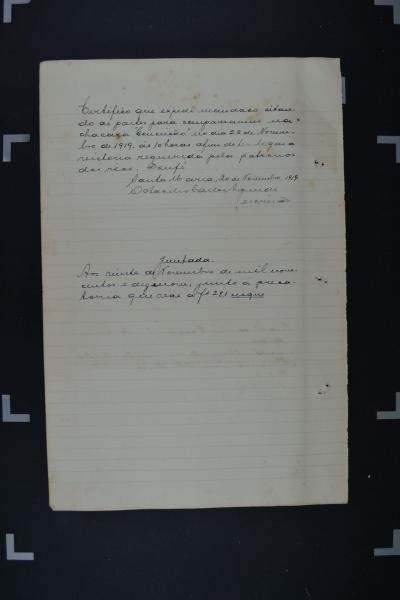 Certifico que expedi mandado citan-
do as partes para comparecerem na
chacara "Conceição" no dia 22 de Novem-
bro de 1919. ás 10 horas afim de ter logar a
vistoria requerida pelos patronos
dos reos. Dou fé
Santa Maria, 20 de Novembro 1919
O escrivão Carlos
Juntada.
Aos vinte de Novembro de mil nove
centos e dezenove, junto a preca-
toria que